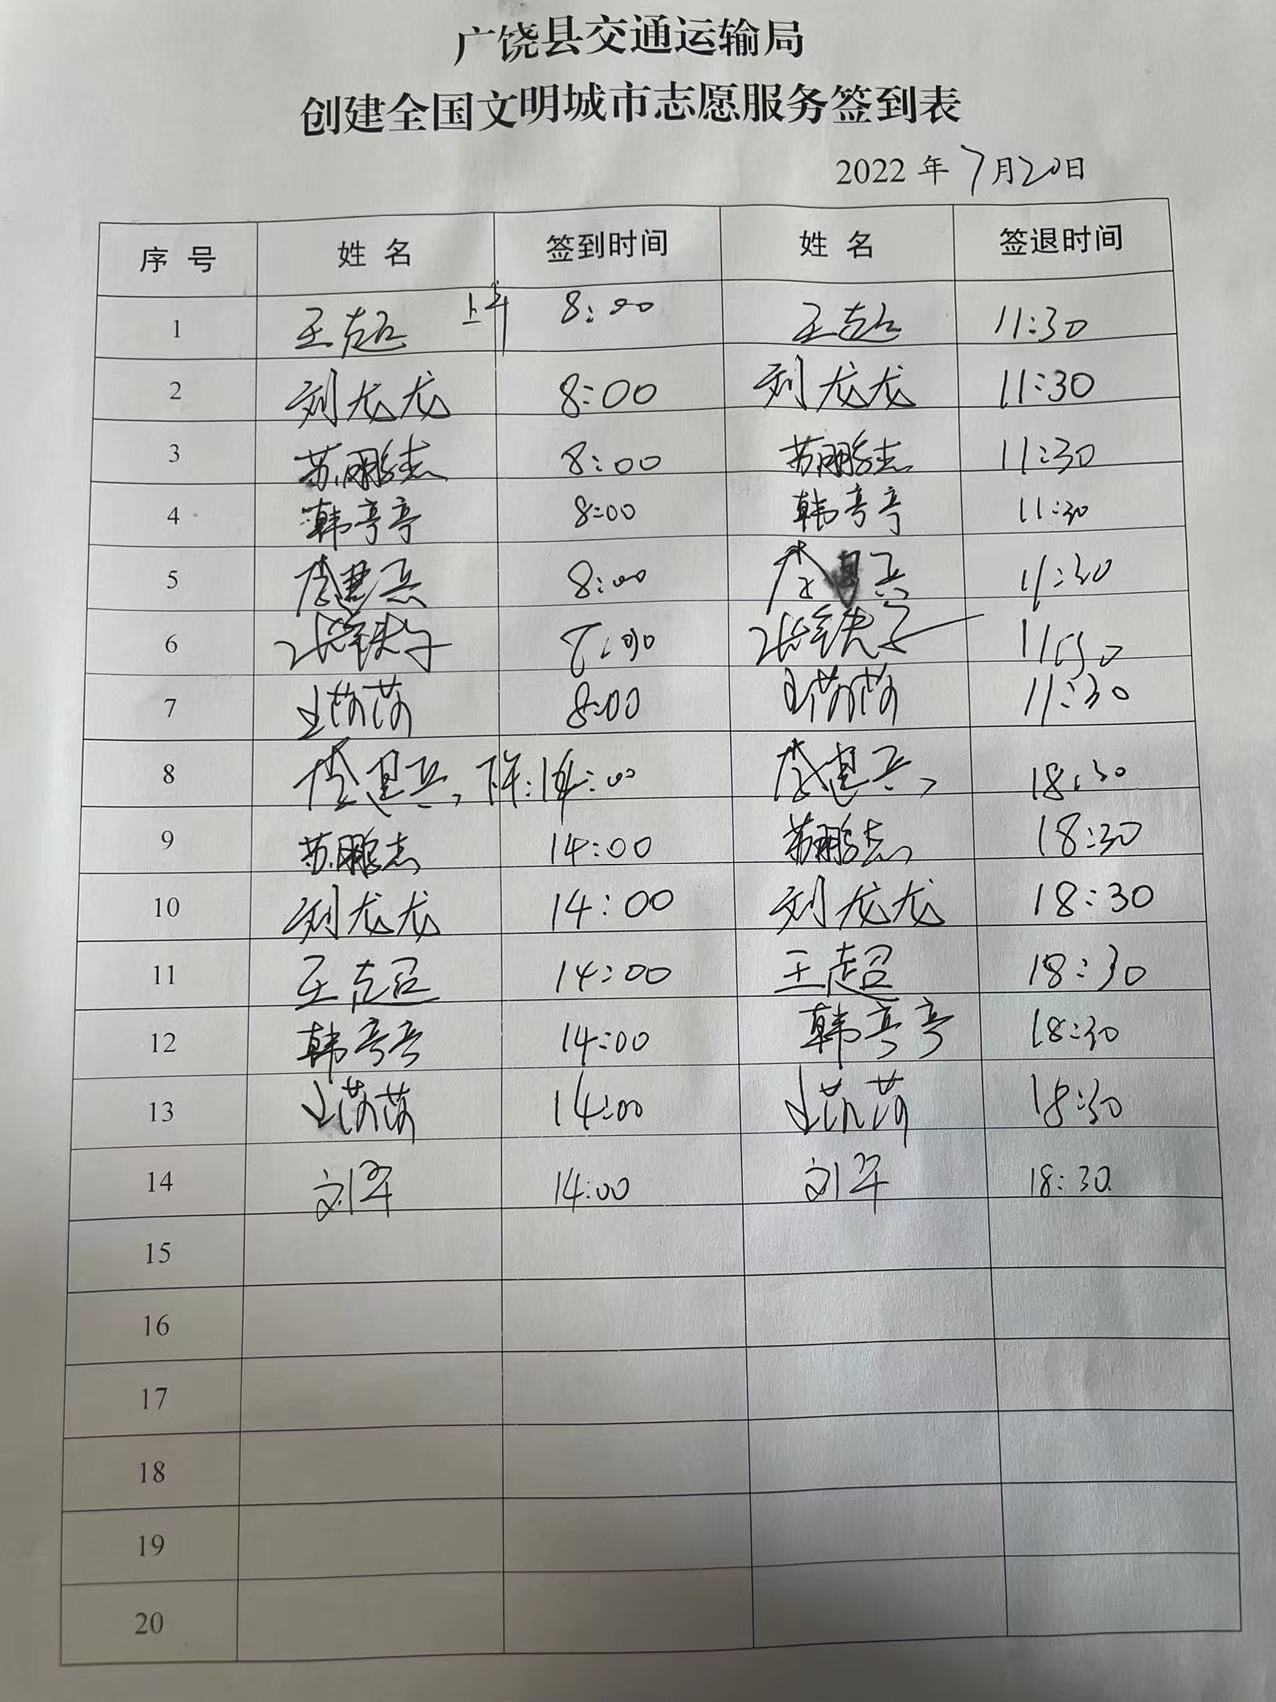 广饶县交通运输局
创建全国文明城市志愿服务签到表
2022 年 7月20日
序 号 姓 名 签到时间 姓 名 签退时间
1 王超 上午 8:00 王超 11:30
2 刘龙龙 8:00 刘龙龙 11:30
3 苏鹏志 8:00 苏鹏志 11:30
4 韩亭亭 8:00 韩亭亭 11:30
5 李建兵 8:00 李建兵 11:30
6 11:30
7 8:00 11:30
8 李建兵 下午:14:00 李建兵 18:30
9 苏鹏志 14:00 苏鹏志 18:30
10 刘龙龙 14:00 刘龙龙 18:30
11 王超 14:00 王超 18:30
12 韩亭亭 14:00 韩亭亭 18:30
13 14:00 18:30
14 刘军 14:00 刘军 18:30
15
16
17
18
19
20